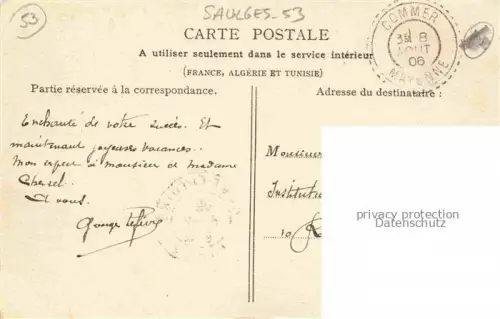 53
SAULGES-53
CARTE POSTALE
A utiliser seulement dans le service intérieur
(FRANCE, ALGÉRIE ET TUNISIE)
COMMER
8
AOUT
06
MAYENNE
Partie réservée à la correspondance.
Adresse du destinataire :
Enchanté de votre succès. Et
maintenant joyeuses vacances.
Mon espoir à monsieur et madame
A vous.
Monsieur
privacy protection
Datenschutz